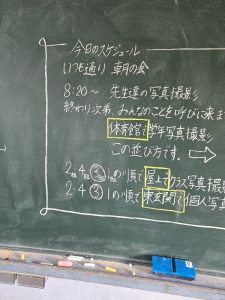 今日のスケジュール
いつも通り 朝の会
8:20～ 先生達の写真撮影
終わり次第、みんなのことを呼びに来ま
体育館で学年写真撮影
この並び方です。
2組4組③1組の順で屋上でクラス写真撮影
2·4③1の順で東玄関で個人写真